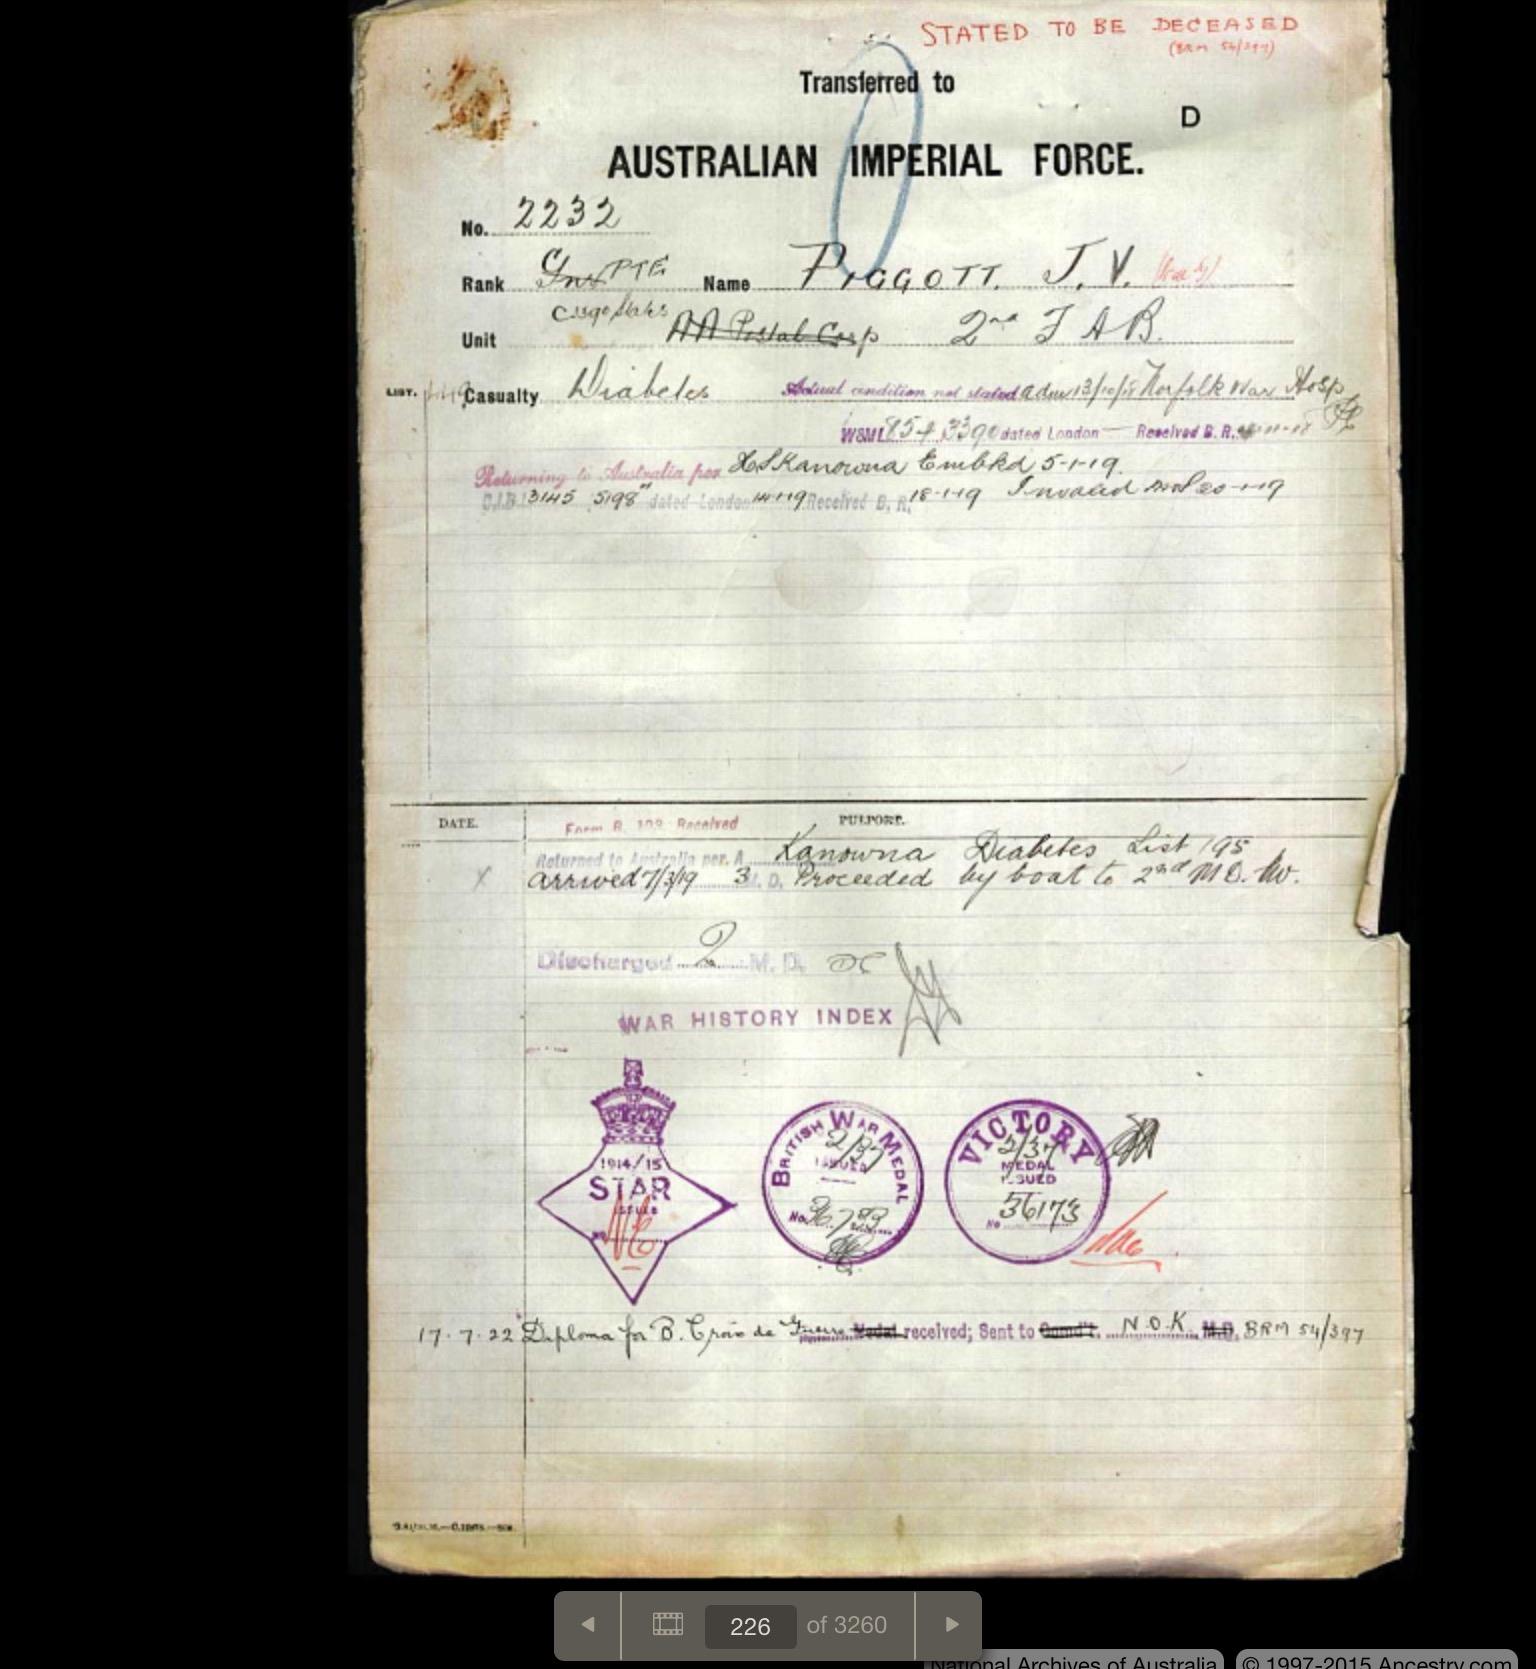 STATED TO BE DECEASED
(BRM 54/397)
Transferred to
D
AUSTRALIAN IMPERIAL FORCE.
No. 2232
Rank PTE Name PIGGOTT. J. V.
Unit AA Postal Corp 2nd F A B.
LIST. Casualty Diabetes Actual condition not stated adm 13/10/18 Norfolk War Hosp
dated London Received B. R.
Returning to Australia per HS Kanowna Embkd 5-1-19.
3145 5198 dated London 14-1-19 Received B. R. 18-1-19 Invalid 20-1-19
DATE. Form B. 103 Received PURPORT.
Returned to Australia per. Kanowna Diabetes List 195
arrived 7/3/19 3 M. D. Proceeded by boat to 2nd M D.
Discharged 2 M. D.
WAR HISTORY INDEX
1914/15
STAR
ISSUED
No
BRITISH WAR MEDAL
2/37
ISSUED
No
VICTORY
2/37
MEDAL
ISSUED
No 36173
17.7.22 Diploma for B. Croix de Guerre Medal received; Sent to Comd't. N.O.K. M.D. BRM 54/397
226 of 3260
National Archives of Australia
© 1997-2015 Ancestry.com